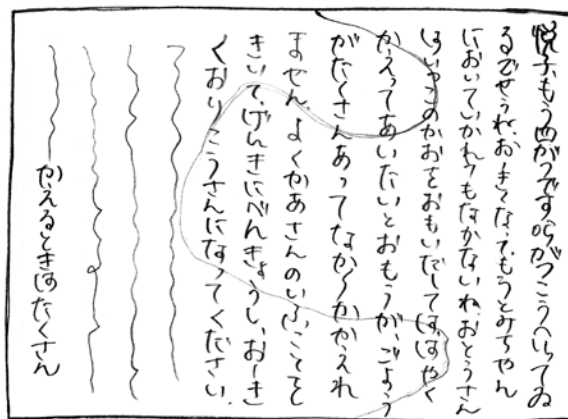 悦子、もう四がつですからがつこうへいってゐ
るでせうね。おーきくなって、もうとみちゃん
においていかれてもなかないね。おとうさん
はいつこのかおをおもいだしてははやく
かえってあいたいとおもうが、ごよう
がたくさんあってなか〱かかえれ
ません。よくかあさんのいふことを
きいて、げんきにべんきょうし、おーき
くおりこうさんになってください。
かえるときはたくさん